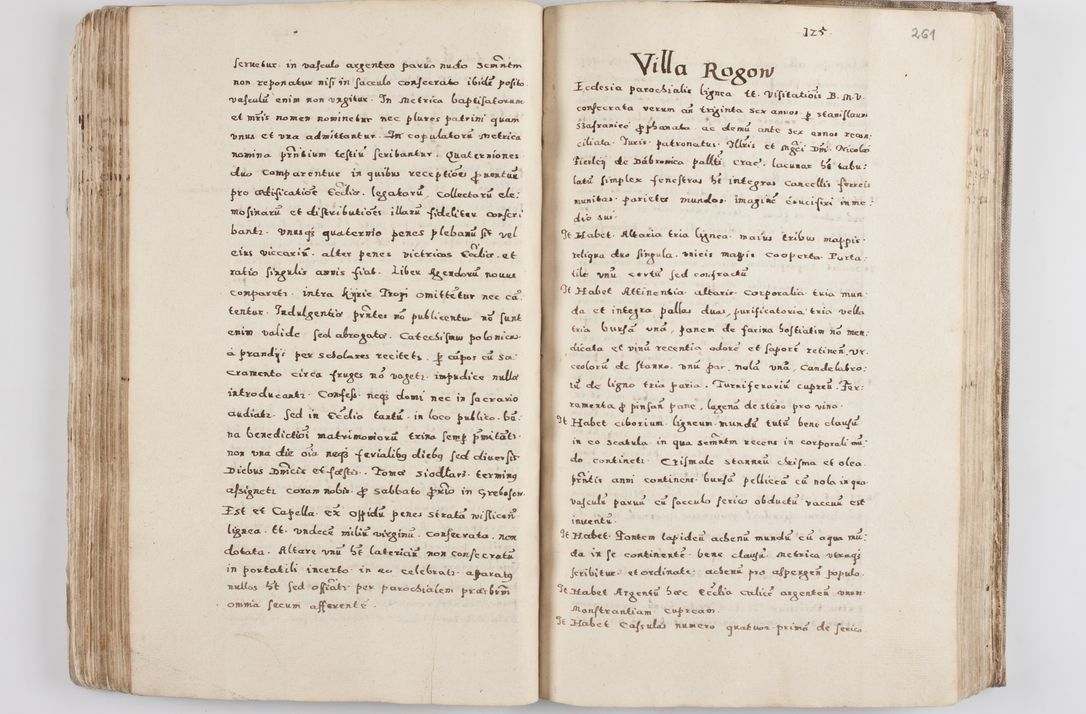 seruetur in vasculo argenteo paruo nudo Scm̃ntm
non reponatur nisi in sacculo consecrato ibidẽ posito
vasculũ enim non vngitur. In Metrica baptisatorum
et mr̃is nomen nominetur nec plures patrini quam
vnus et vna admittantur. In copulatorũ Metrica
nomina prñtium testiũ scribantur. Quaterniones
duo comparentur in quibus receptiões prouentuũ
pro ædificatiõe Eccliæ. legatorũ, collectarũ ele:
mosinarũ et distributiões illarũ fideliter conscri
bantz. vnusqz quaternio penes plebanũ sit vel
eius viccariũ. alter penes victricos Eccliæ. et
ratio singulis annis fiat. Liber Agendorũ nouus
comparetz. intra Kyrie Tropi omittẽtur nec cã:
tentur. Indulgentiæ prñtes nõ publicentur nõ sunt
enim validæ sed abrogatæ. Catechismus polonicus
a prandijs per scholares recitetz. p cãpos cũ Sa:
cramento circa fruges nõ vagetz. impudicæ nullæ
introducantz. Confess. neqz domi nec in sacrario
audiatz. sed in Ecclia tantũ. in loco publico. bã:
na benedictiõi matrimoniorũ trina semp pmittãtz.
non vna die oĩa neqz ferialibz diebz sed diuersis
Diebus Dñicis et fæstis. Tomæ Siodlarz. terminus
assignetz coram nobis p Sabbato prio in Grebosow.
Est et Capella ex Oppidũ penes stratã wislicen̄
lignea. tt. vndecẽ miliũ virginũ. consecrata. non
dotata. Altare vnũ ht latericiũ non consecratũ
in portatili incerto in eo celebratz. apparatus
nullos ht sed officiatz per parochialem præsbrm
omnia secum afferentẽ.
125
261
Villa Rogow
Ecclesia parochialis lignea tt. Visitatiõis B. M. V.
consecrata verum añ triginta sex annos p Stanislaum
Szafraniec pphanata ac demũ ante sex annos recon:
ciliata. Iuris patronatus Illris et Mgci Dñi Nicolai
Firlej de Dabrowica pallti Crac. lacunar ht tabu:
latũ simplex fenestras ht integras cancellis ferreis
munitas. parietes mundos. imaginẽ crucifixi in me:
dio sui.
It Habet. Altaria tria lignea. maius tribus mappis.
reliqua duo singula. vnicis mappis cooperta. Porta:
tile vnũ certũ sed confractũ
It Habet Attinentia altaris Corporalia tria mun:
da et integra pallas duas, purificatoria tria vella
tria bursã vnã, panem de farina hostiatim nõ men:
dicata et vinũ recentia odorẽ et saporẽ retinen̄. vr:
ceolorũ de stanno. vnũ par. nolã vnã, candelabro:
rũ de ligno tria paria. Turriferariũ cupreũ. Fer:
ramenta p pinsen̄ pane, lagenã de stãno pro vino.
It Habet ciborium ligneum mundũ tutũ bene clausũ
in eo scatula in qua Scm̃ntm recens in corporali mũ:
do continetz. Crismale stanneũ chrisma et olea
prñtis anni continens bursã pelliceã cũ nola in qua
vasculũ paruũ cũ sacculo serico obductũ vacuũ est
inuentũ.
It Habet. Fontem lapideũ achenũ mundũ cũ aqua mũ:
da in se continentẽ. bene clausũ Metrica vtraqz
scribitur et ordinatẽ. achenũ pro aspergen̄ populo.
It Habet Argentũ hæc Ecclia calicẽ argenteũ vnum
Monstrantiam cupream.
It Habet Cassulas numero quatuor. prima de serico